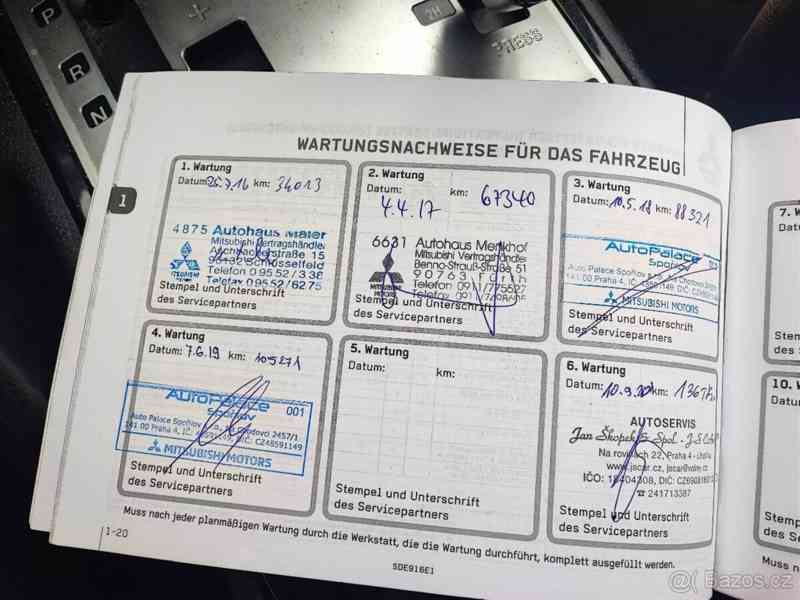 P
R
N
2H
PRESS
WARTUNGSNACHWEISE FÜR DAS FAHRZEUG
1
1. Wartung
Datum: 25.7.16 km: 34013
4875 Autohaus Maier
Mitsubishi Vertragshändler
Aschbacherstraße 15
96132 Schlüsselfeld
Telefon 09552/338
Telefax 09552/6275
Stempel und Unterschrift
des Servicepartners
2. Wartung
Datum: km: 67340
4.4.17
6631 Autohaus Menkhof
Mitsubishi Vertragshändler
Benno-Strauß-Straße 51
90763 Fürth
Telefon 0911/775527
Telefax
Stempel und Unterschrift
des Servicepartners
3. Wartung
Datum: 10.5.18 km: 88321
AutoPalace
Spořilov
Auto Palace Spořilov
141 00 Praha 4, IČ: 48591149, DIČ: CZ48591149
MITSUBISHI MOTORS
Stempel und Unterschrift
des Servicepartners
4. Wartung
Datum: 7.6.19 km: 105271
AutoPalace 001
Spořilov
Auto Palace Spořilov Na Chodovci 2457/1
141 00 Praha 4, IČ: 48591149, DIČ: CZ48591149
MITSUBISHI MOTORS
Stempel und Unterschrift
des Servicepartners
5. Wartung
Datum: km:
Stempel und Unterschrift
des Servicepartners
6. Wartung
Datum: 10.9. km:
AUTOSERVIS
Jan Škopek Spol.
Na rovinách 22, Praha 4 - Lhotka
www.jscar.cz, jscar@volny.cz
IČO: 18404308, DIČ:
☎ 241713387
Stempel und Unterschrift
des Servicepartners
7. W
Datu
Stemp
des S
10. W
Datum
Stemp
des Se
Muss nach jeder planmäßigen Wartung durch die Werkstatt, die die Wartung durchführt, komplett ausgefüllt werden.
Muss n
1-20
SDE916E1
@ Bazos.cz